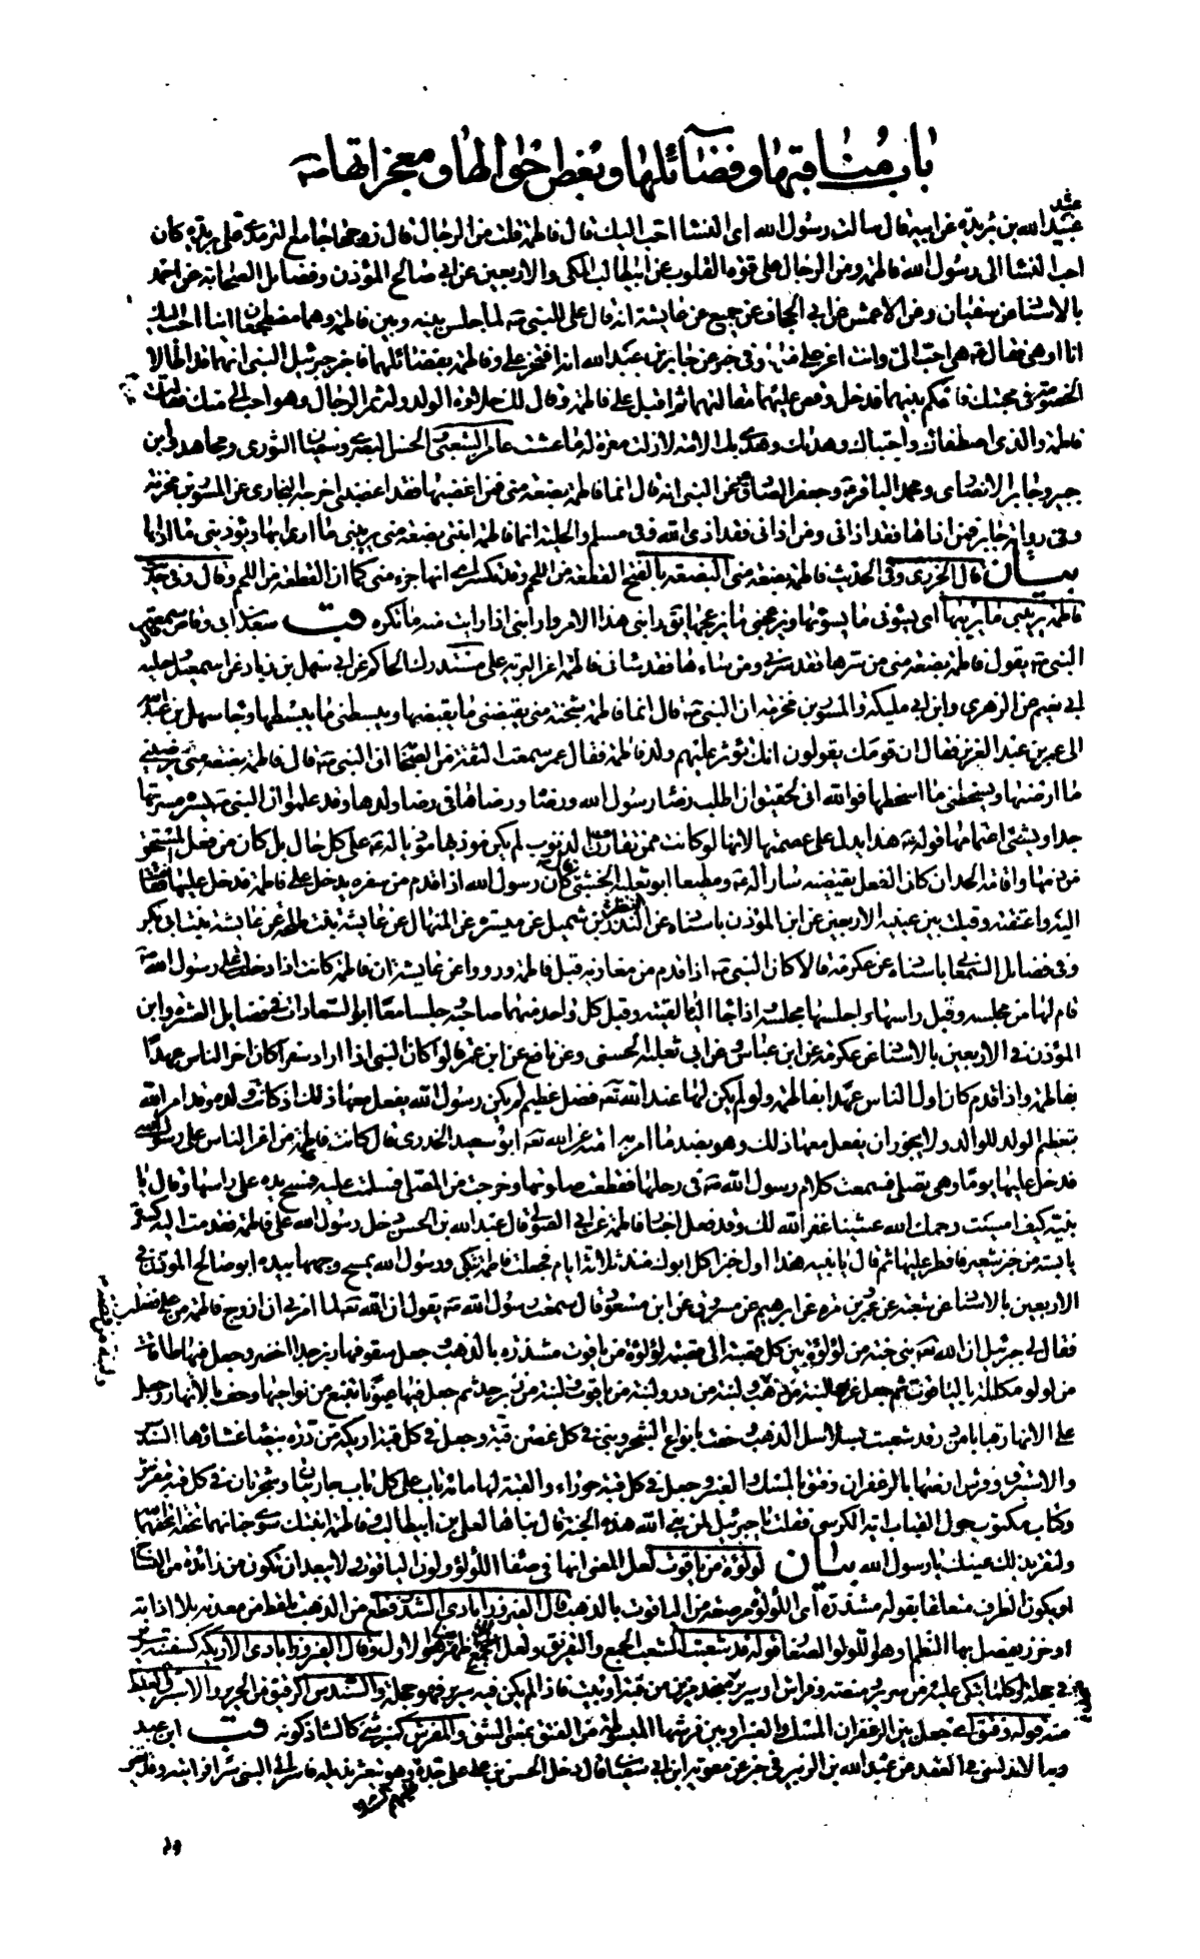 باب مناقبها وفضائلها وبعض احوالها ومعجزاتها
عبد الله بن بريدة عن ابيه قال سالت رسول الله اى النساء احب اليك قال فاطمة قلت من الرجال قال زوجها جامع الترمذى قال بريدة كان
احب النساء الى رسول الله فاطمة ومن الرجال على قوة القلوب عن ابيطالب المكى والاربعين عن ابى صالح المؤذن وفضائل الصحابة عن احمد
بالاسناد عن سفيان وعن الاعمش عن ابى الجحاف عن جميع عن عايشة انه قال على للنبى لما جلس بينه وبين فاطمة وهما مضطجعان اينا احب اليك
انا او هى فقال هى احب الى وانت اعز على منها وفى خبر عن جابر بن عبد الله انه افتخر على وفاطمة بفضائلهما فاخبر جبرئيل النبى انهما قد اطالا
الخصومة فى محبتك فاحكم بينهما فدخل وقص عليهما مقالتهما ثم اقبل على فاطمة وقال لك حلاوة الولد وله عز الرجال وهو احب الى منك فقالت
فاطمة والذى اصطفاك واجتباك وهداك وهدى بك الامة لا زلت مقرة له ما عشت عامر الشعبى والحسن البصرى وسفيان الثورى ومجاهد وابن
جبير وجابر الانصارى ومحمد الباقر وجعفر الصادق عن النبى انه قال انما فاطمة بضعة منى فمن اغضبها فقد اغضبنى اخرجه البخارى عن المسور بن مخرمة
وفى رواية جابر فمن اذاها فقد اذانى ومن اذانى فقد اذى الله وفى مسلم والحلية انما فاطمة ابنتى بضعة منى يريبنى ما ارابها ويؤذينى ما اذاها
بيان قال الجزرى وفى الحديث فاطمة بضعة منى البضعة بالفتح القطعة من اللحم وقد تكسر اى انها جزء منى كما ان القطعة من اللحم وقال وفى حديث
فاطمة يريبنى ما يريبها اى يسوئنى ما يسوئها ويزعجنى ما يزعجها يق رابنى هذا الامر وارابنى اذا رايت منه ما تكره قب سعد بن ابى وقاص سمعت
النبى يقول فاطمة بضعة منى من سرها فقد سرنى ومن ساءها فقد سائنى فاطمة اعز البرية على مستدرك الحاكم عن ابى سهل بن زياد عن اسمعيل وحلية
ابى نعيم عن الزهرى وابن ابى مليكة والمسور بن مخرمة ان النبى قال انما فاطمة شجنة منى يقبضنى ما يقبضها ويبسطنى ما يبسطها وجاء سهل بن عبد الله
الى عمر بن عبد العزيز فقال ان قومك يقولون انك تؤثر عليهم ولد فاطمة فقال عمر سمعت الثقة من الصحابة ان النبى قال فاطمة بضعة منى يرضينى
ما ارضاها ويسخطنى ما اسخطها فوالله انى لحقيق ان اطلب رضا رسول الله ورضاه ورضاها فى رضا ولدها وقد علموا ان النبى يسره مسرتها
جدا ويشنى اغتمامها قوله هذا يدل على عصمتها لانها لو كانت ممن تقارف الذنوب لم يكن موذيها موذيا له على كل حال بل كان من فعل المستحق
من ذمها واقامة الحد ان كان الفعل يقتضيه سارا له ومطيعا ابو ثعلبة الخشنى قال كان رسول الله اذا قدم من سفره يدخل على فاطمة فدخل عليها فقامت
اليه واعتنقته وقبلت بين عينيه الاربعين عن ابن المؤذن باسناده عن النضر بن شميل عن ميسرة عن المنهال عن عايشة بنت طلحة عن عايشة بنت ابى بكر
وفى فضائل السمعانى باسناده عن عكرمة قالا كان النبى اذا قدم من مغازيه قبل فاطمة ورووا عن عايشة ان فاطمة كانت اذا دخلت على رسول الله
قام لها من مجلسه وقبل راسها واجلسها مجلسه واذا جاء اليها لقيته وقبل كل واحد منهما صاحبه وجلسا معا ابو السعادات فى فضايل العشرة وابن
المؤذن فى الاربعين بالاسناد عن عكرمة عن ابن عباس وعن ابى ثعلبة الخشنى وعن نافع عن ابن عمر قالوا كان النبى اذا اراد سفرا كان اخر الناس عهدا
بفاطمة واذا قدم كان اول الناس عهدا بفاطمة ولو لم يكن لها عند الله فضل عظيم لم يكن رسول الله يفعل معها ذلك اذ كانت ولده وقد امر الله
بتعظيم الولد للوالد ولا يجوز ان يفعل معها ذلك وهو بضد ما امر به امته عن الله ابو سعيد الخدرى قال كانت فاطمة من اعز الناس على رسول الله
فدخل عليها يوما وهى تصلى فسمعت كلام رسول الله فى رحلها فقطعت صلوتها وخرجت من المصلى فسلمت عليه فمسح يده على راسها وقال يا
بنية كيف امسيت رحمك الله عشينا غفر الله لك وقد فعل اخبار فاطمة عن ابى الصولى قال عبد الله بن الحسن دخل رسول الله على فاطمة فقدمت اليه كسرة
يابسة من خبز شعير فافطر عليها ثم قال يا بنية هذا اول خبز اكل ابوك منذ ثلاثة ايام فجعلت فاطمة تبكى ورسول الله يمسح وجهها بيده ابو صالح المؤذن فى
الاربعين بالاسناد عن شعبة عن عمرو بن مرة عن ابرهيم عن مسروق عن ابن مسعود قال سمعت رسول الله يقول ان الله لما امرنى ان ازوج فاطمة من على ففعلت
فقال لى جبرئيل ان الله بنى جنة من لؤلؤة بين كل قصبة الى قصبة لؤلؤة من ياقوت مشذرة بالذهب وجعل سقوفها زبرجدا اخضر وجعل فيها طاقات
من لؤلؤ مكللة بالياقوت ثم جعل غرفها لبنة من ذهب ولبنة من در ولبنة من ياقوت ولبنة من زبرجد ثم جعل فيها عيونا تنبع من نواحيها وحف بالانهار وجعل
على الانهار قبابا من در قد شعبت بسلاسل الذهب وحفت بانواع الشجر وبنى فى كل غصن قبة وجعل فى كل قبة اريكة من درة بيضاء غشاؤها السندس
والاستبرق وفرش ارضها بالزعفران وفتق بالمسك والعنبر وجعل فى كل قبة حوراء والقبة لها مائة باب على كل باب جاريتان وشجرتان فى كل قبة مفرش
وكتاب مكتوب حول القباب اية الكرسى فقلت يا جبرئيل لمن بنى الله هذه الجنة قال بناها لعلى بن ابيطالب وفاطمة ابنتك سوى جنانهما تحفة اتحفهما
ولتقر بذلك عينك يا رسول الله بيان لؤلؤة من ياقوت لعل المعنى انها فى صفاء اللؤلؤ ولون الياقوت ولا يبعد ان تكون من زائدة من النساخ
او يكون الظرف متعلقا بقوله مشذرة اى اللؤلؤ مرصعة من الياقوت بالذهب قال الفيروزابادى الشذر قطع من الذهب تلقط من معدنه بلا اذابة
او خرز يفصل بها النظم او هو اللؤلؤ الصغار قوله قد شعبت الشعب الجمع والتفريق ولعل الاول وقال الفيروزابادى الاريكة كسفينة سرير
فى حجلة او كلما يتكى عليه من سرير ومنصة وفراش او سرير متخذ مزين من قبة او بيت فاذا لم يكن فيه سرير فهو حجلة والسندس الرقيق من الحرير والاستبرق الغليظ
منه قوله وفتق اى جعل بين الزعفران المسك والعنبر او بين فرشها المبسوطة من الفتق بمعنى الشق والمفرش كمنبر شىء كالشاذكونة قب ابن عبد
ربه الاندلسى فى العقد عن عبد الله بن الزبير فى خبر عن معوية بن ابى سفيان قال دخل الحسن بن على على جده وهو يتعثر بذيله فاسر الى النبى سرا